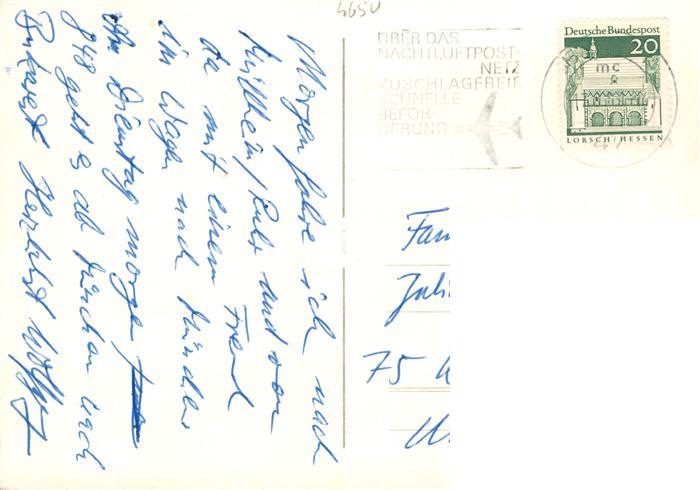 4650
ÜBER DAS
NACHTLUFTPOST-
NETZ
ZUSCHLAGFREIE
SCHNELLE
BEFÖR-
DERUNG
Deutsche Bundespost
20
mc
LORSCH/HESSEN
Morgen fahre ich nach
Mülheim/Ruhr und von
da mit einem Freund
im Wagen nach München
Am Dienstag morgen
848 geht es ab München nach
Bukarest Herzlichst Wolfg
Fam
Juli
75